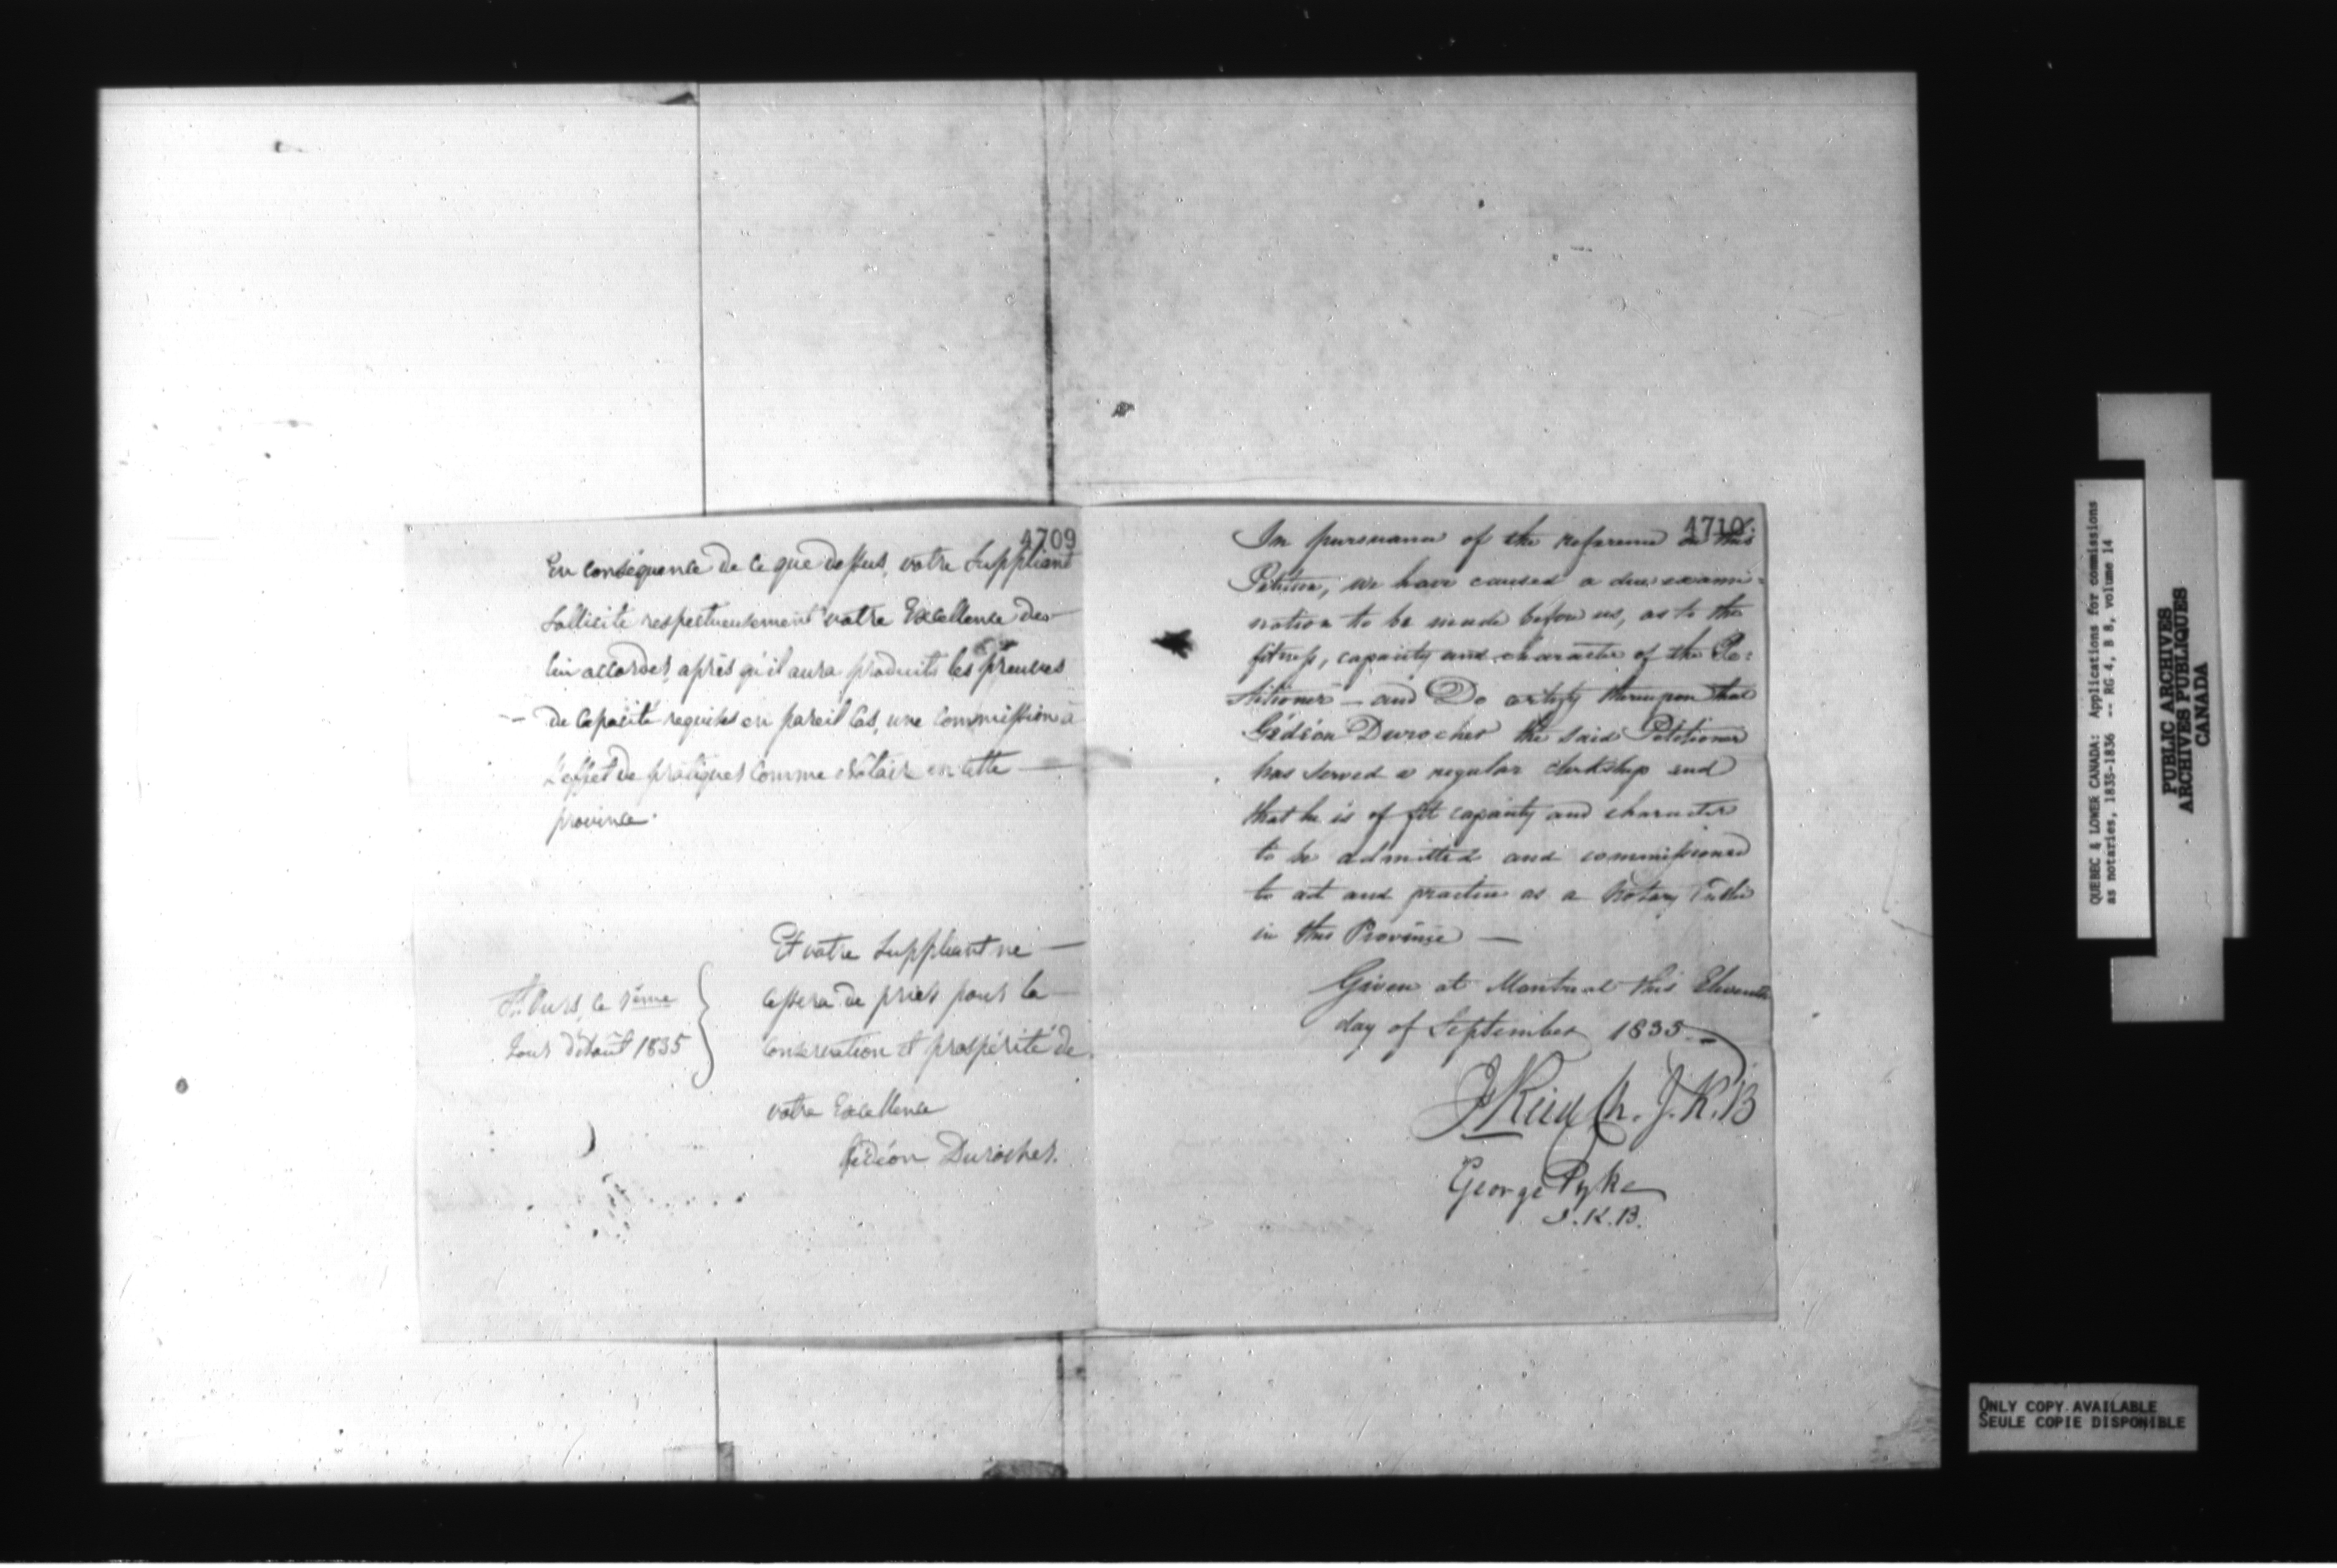 4709
En conséquence de ce que dessus, votre Suppliant
Sollicite respectueusement votre Excellence de
lui accorder, après qu'il aura produits les preuves
de Capacité requises en pareil Cas, une Commission à
l'effet de pratiquer Comme Notaire en cette
province.
Et votre Suppliant ne
cessera de prier pour la
Conservation et prospérité de
votre Excellence
Gédéon Durocher.
St. Ours, le
Jour d'Août 1835
4710
In pursuance of the reference on this
Petition, we have caused a due exami=
nation to be made before us, as to the
fitness, capacity and character of the Pe=
titioner — and Do certify thereupon that
Gédéon Durocher the said Petitioner
has served a regular clerkship and
that he is of fit capacity and character
to be admitted and commissioned
to act and practice as a Notary Public
in this Province —
Given at Montreal this Eleventh
day of September 1835
J Reid Ch. J. K. B
George Pyke
J. K. B.
QUEBEC & LOWER CANADA: Applications for commissions
as notaries, 1835-1836 -- RG 4, B 8, volume 14
PUBLIC ARCHIVES
ARCHIVES PUBLIQUES
CANADA
ONLY COPY AVAILABLE
SEULE COPIE DISPONIBLE